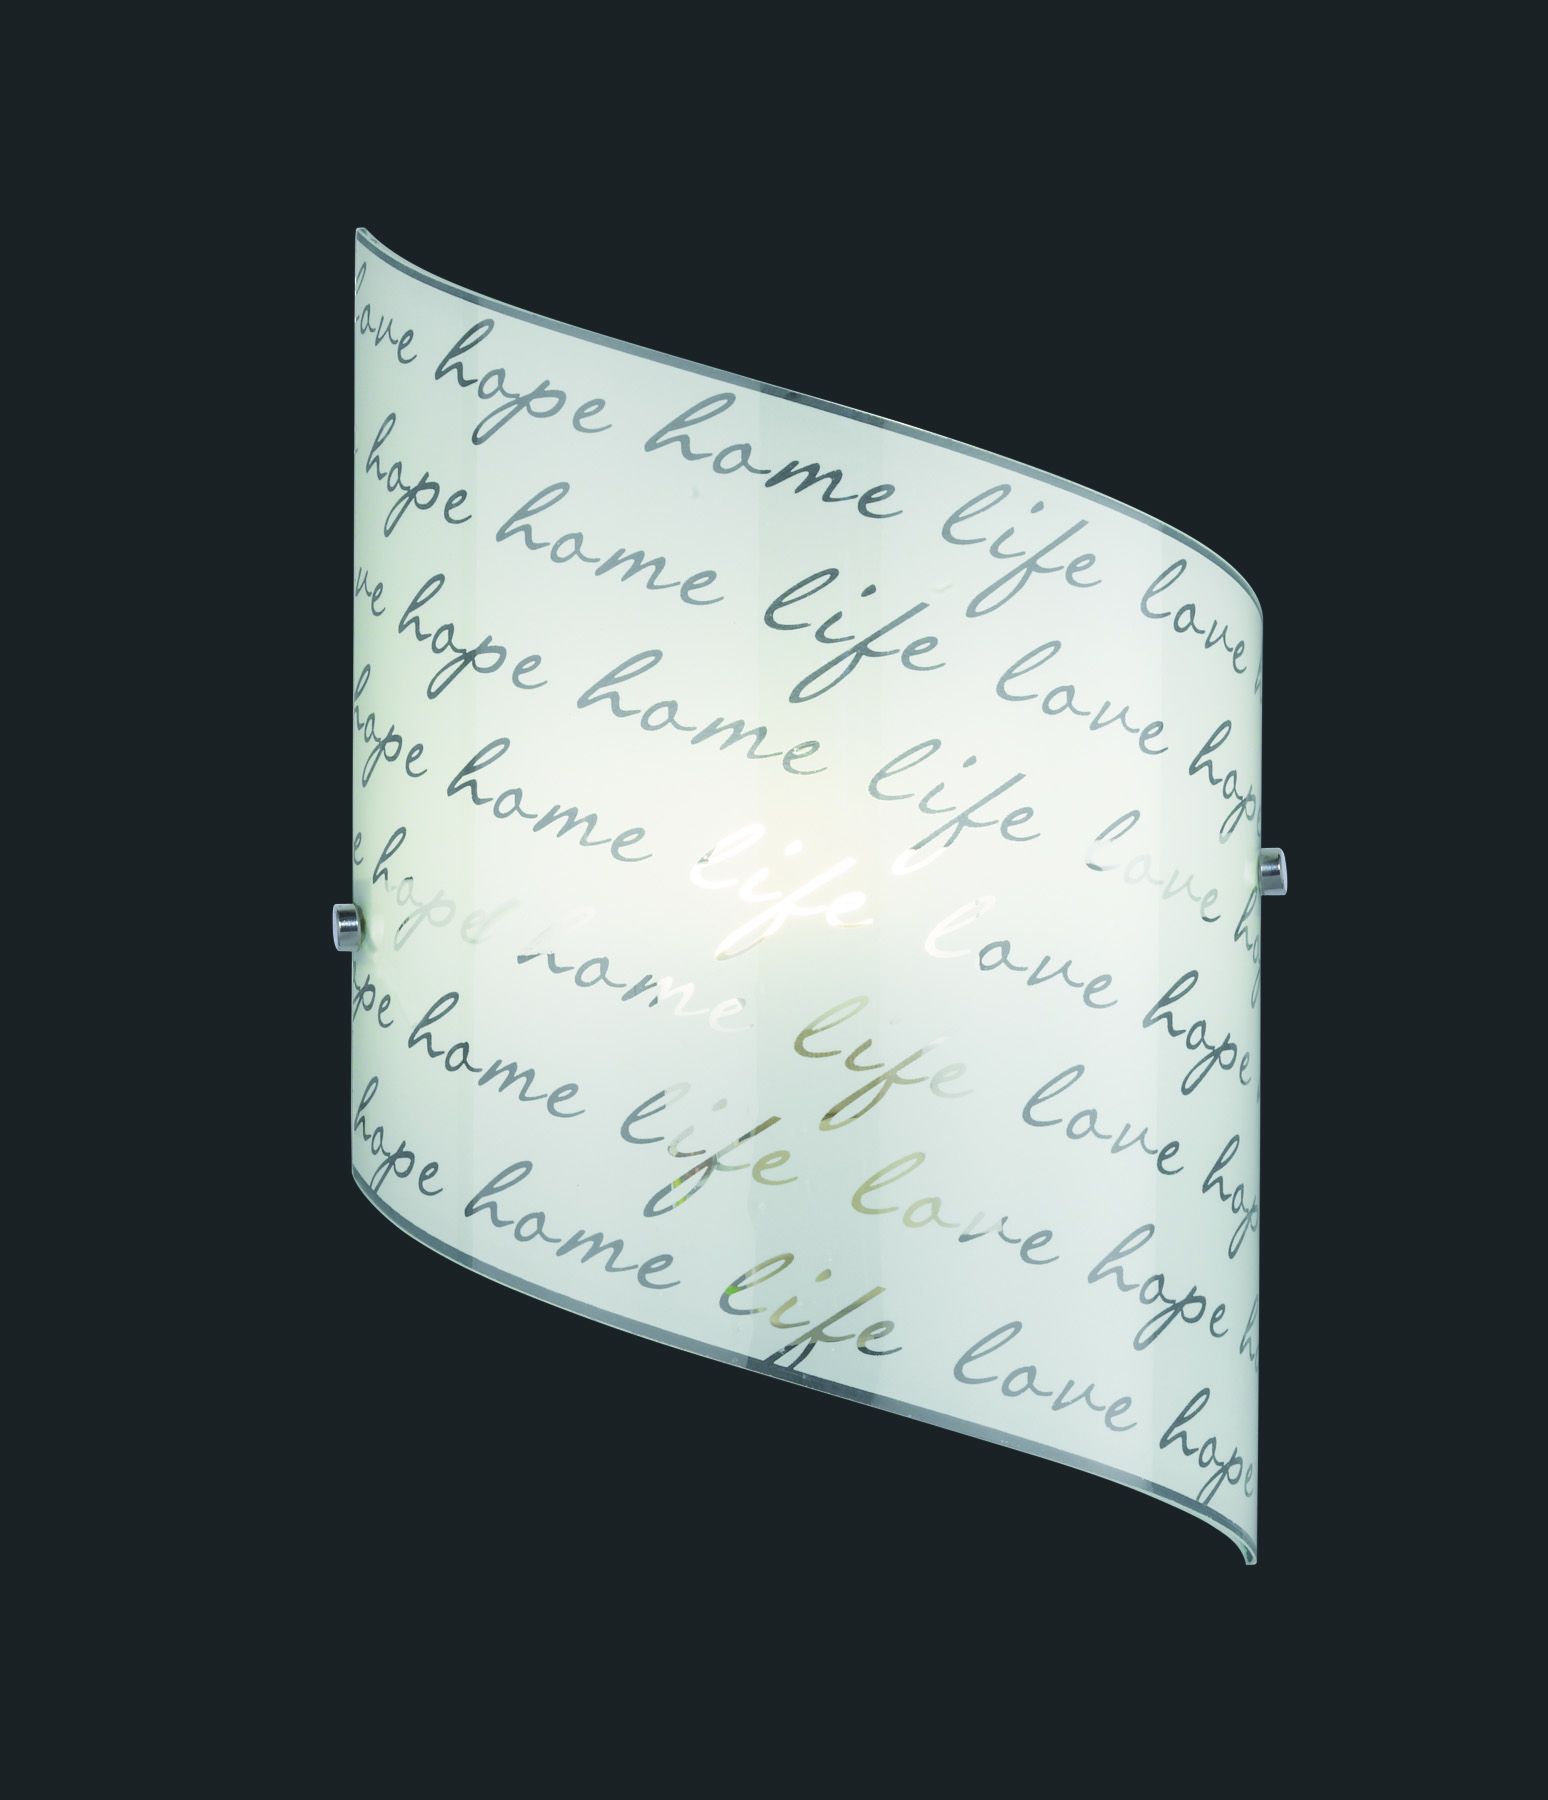 love hope home life love
hope home life love hope
ve hope home life love ho
hope home life love hope
e hope home life love hop
ope home life love hope h
hope home life love hope